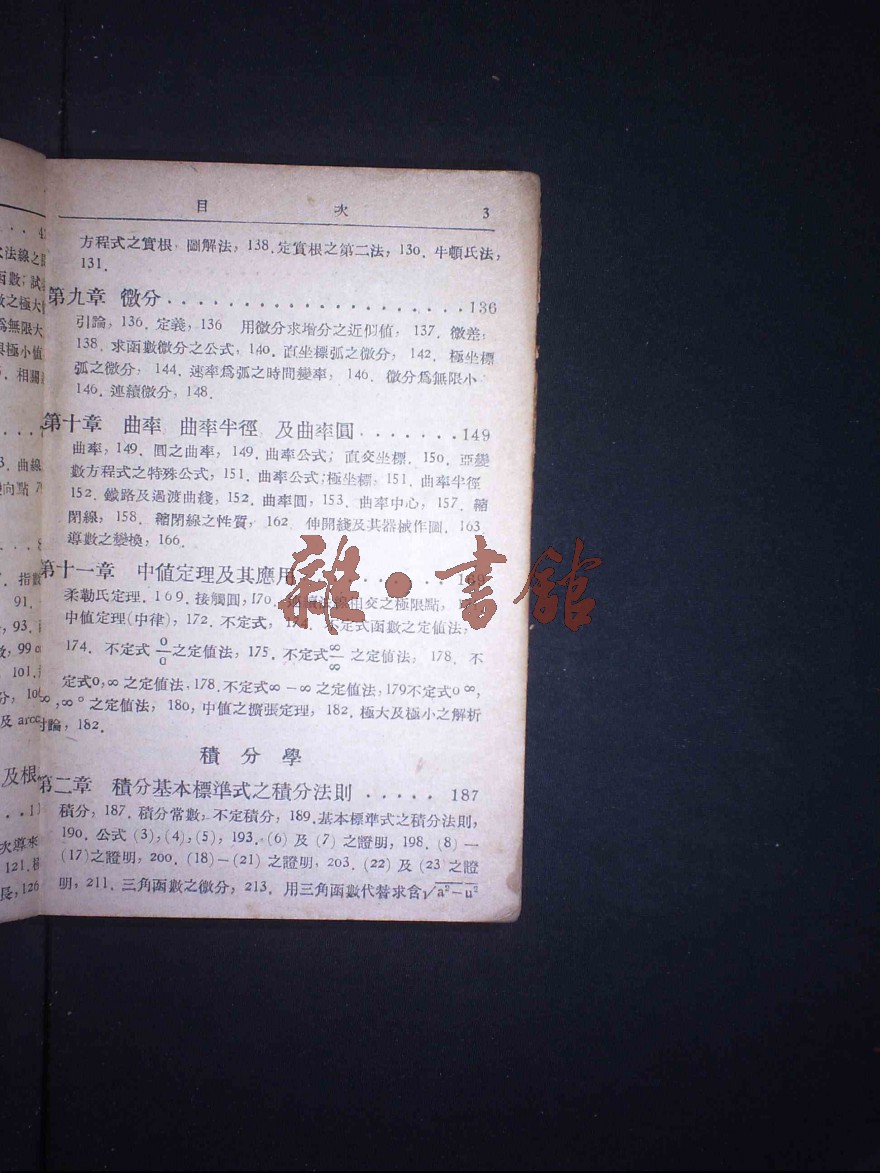 目 次 3
方程式之實根，圖解法，138.定實根之第二法，130. 牛頓氏法，
131.
第九章 微分 . . . . . . . . . . . . . . . . . . . 136
引論，136. 定義，136 用微分求增分之近似值， 137. 微差，
138. 求函數微分之公式，140. 直坐標弧之微分， 142. 極坐標
弧之微分， 144. 速率爲弧之時間變率， 146. 微分爲無限小
146. 連續微分，148.
第十章 曲率，曲率半徑，及曲率圓 . . . . . . . 149
曲率，149. 圓之曲率，149. 曲率公式；直交坐標．150. 亞變
數方程式之特殊公式，151. 曲率公式；極坐標，151. 曲率半徑
152. 鐵路及過渡曲綫，152. 曲率圓，153. 曲率中心，157. 縮
閉線，158. 縮閉線之性質， 162. 伸開綫及其器械作圖．163.
導數之變換，166.
第十一章 中值定理及其應用 . . . . . . . . 169
柔勒氏定理．169. 接觸圓，170. 相交之極限點，
中值定理(中律)，172. 不定式，174. 不定式函數之定值法，
174. 不定式 0/0 之定值法，175. 不定式 ∞/∞ 之定值法， 178. 不
定式0,∞ 之定值法，178. 不定式∞－∞ 之定值法，179不定式0 ∞,
,∞° 之定值法， 180, 中值之擴張定理， 182. 極大及極小之解析
討論，182.
積 分 學
第二章 積分基本標準式之積分法則 . . . . . 187
積分，187. 積分常數，不定積分，189.基本標準式之積分法則，
190. 公式 (3),(4),(5), 193. (6) 及 (7) 之證明，198. (8)—
(17)之證明，200. (18)—(21) 之證明，203. (22) 及 (23 之證
明，211. 三角函數之微分，213. 用三角函數代替求含√a²－u²
雜·書館